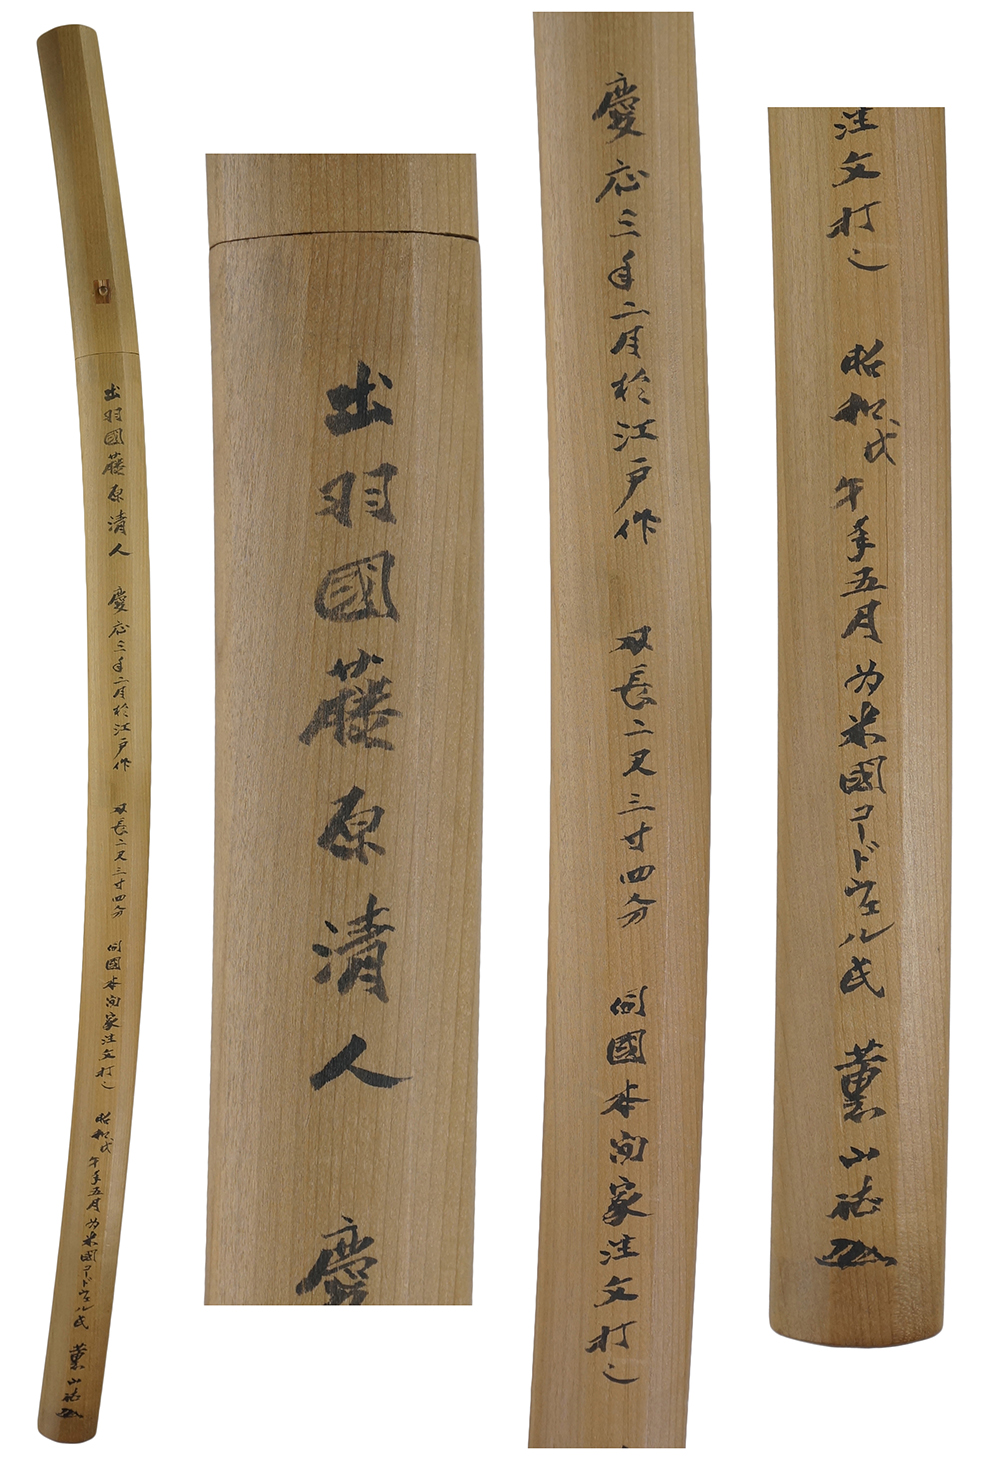 出羽國藤原清人 慶応三年二月於江戸作 刄長二尺三寸四分 同國本間家注文打之 昭和戊午年五月为米國コードヴェル氏 薫山誌
出羽國藤原清人
慶
慶応三年二月於江戸作 刄長二尺三寸四分 同國本間家注文打之
注文打之 昭和戊午年五月为米國コードヴェル氏 薫山誌